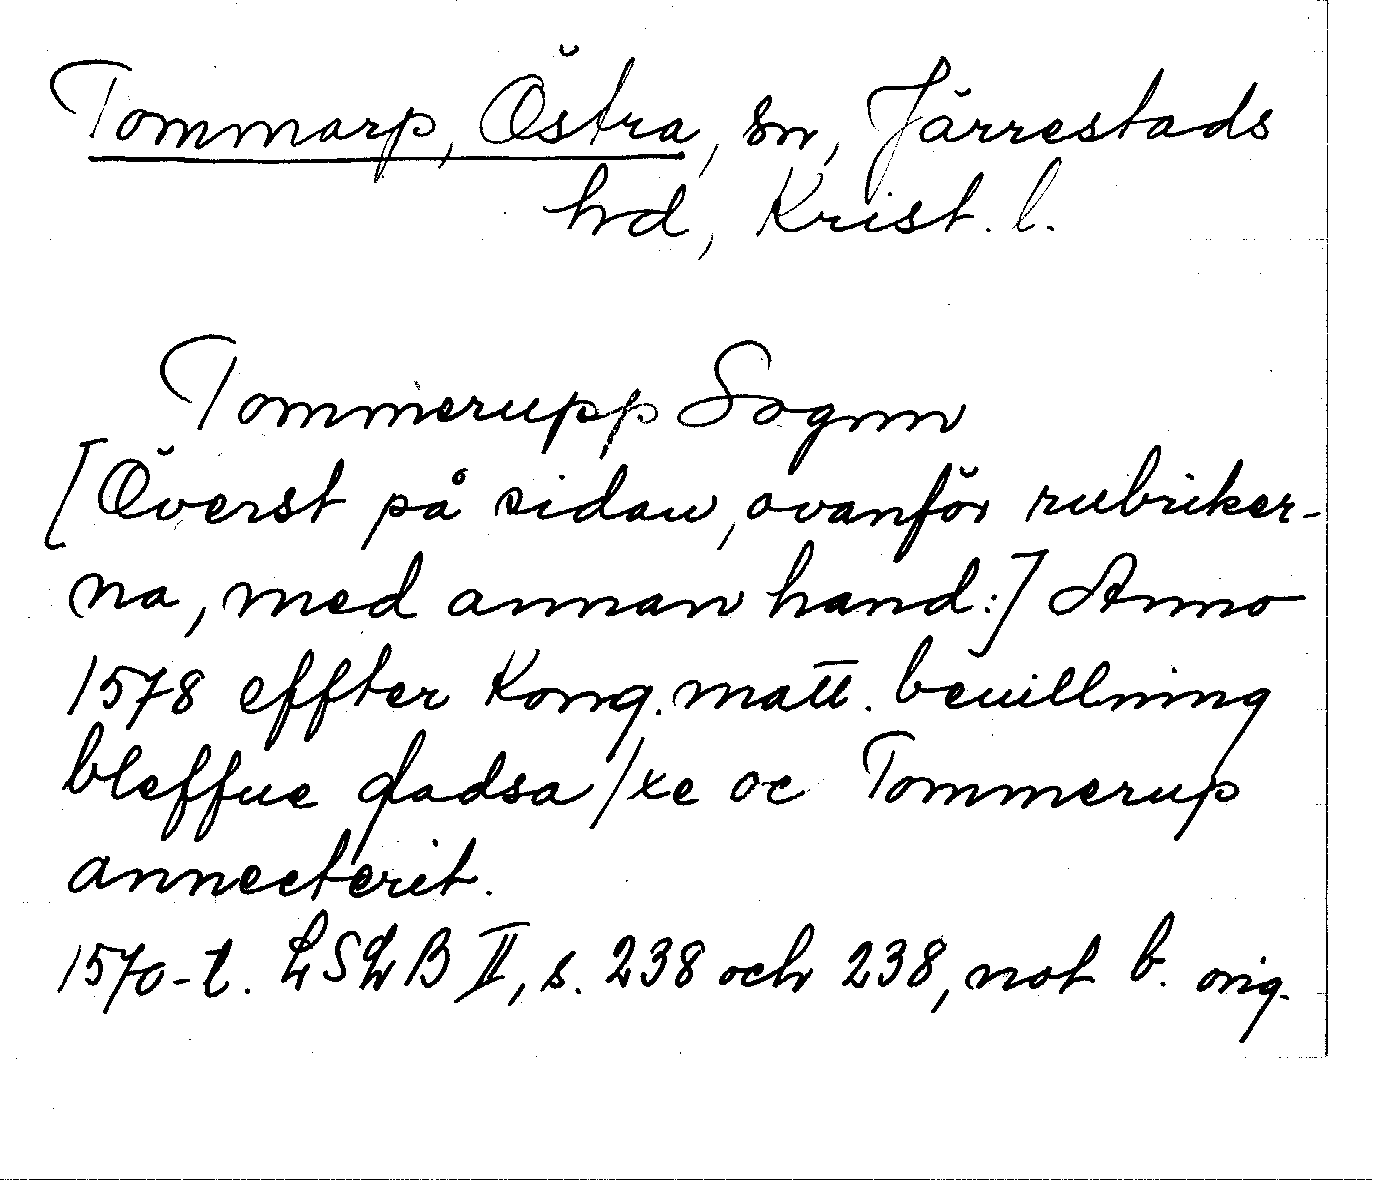 Tommarp, Östra, sn, Järrestads
hd, Krist. l.
Tommerupp Sognn
[Överst på sidan, ovanför rubriker-
na, med annan hand:] Anno
1578 effter Kong. matt. beuillning
bleffue gladsa/xe oc Tommerup
annecterit.
1570-t. LSLB II, s. 238 och 238, not b. orig.